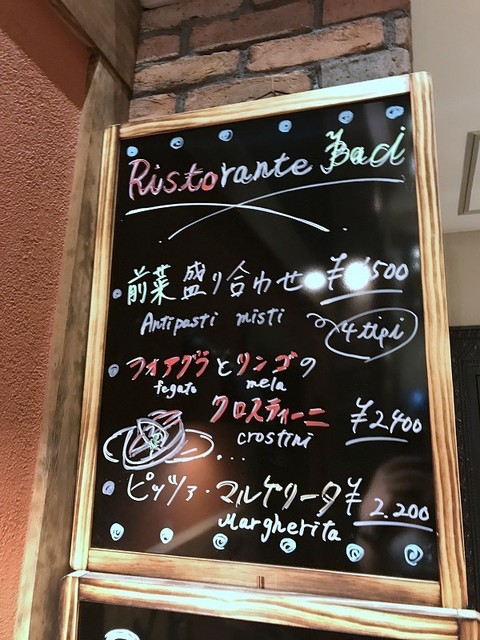 Ristorante Baci
前菜盛り合わせ
Antipasti misti 4 tipi
フォアグラとリンゴの
fegato mela
クロスティーニ ¥2,400
crostini
ピッツァ・マルゲリータ ¥2.200
Margherita